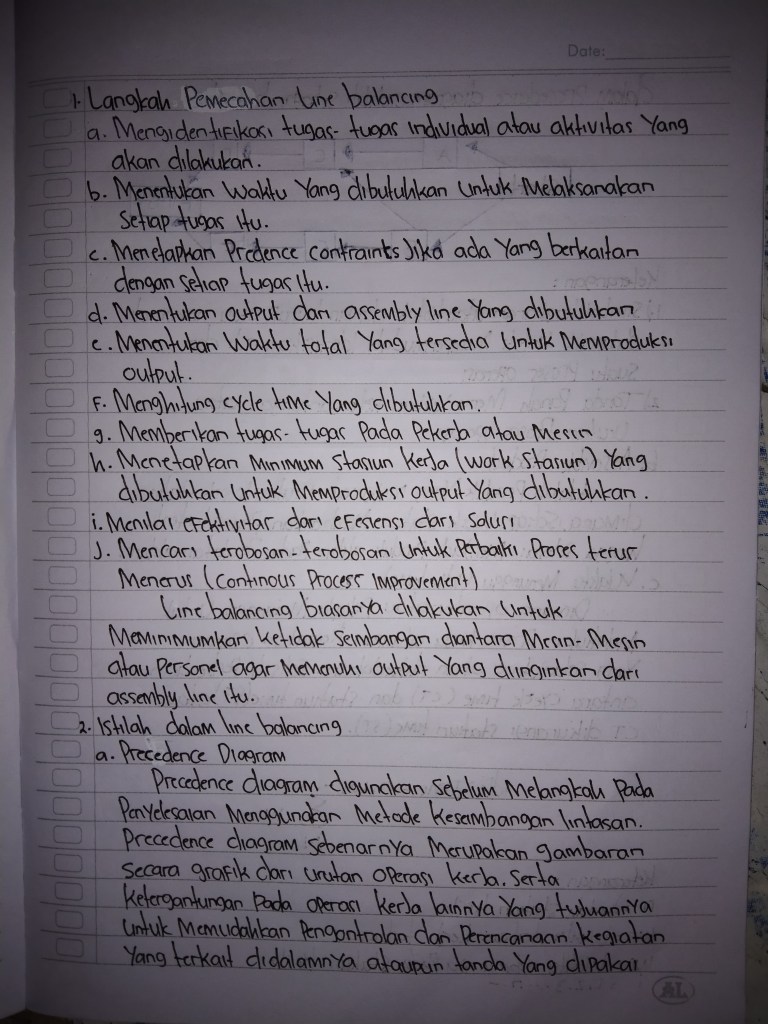 Date:
1. Langkah Pemecahan Line balancing
a. Mengidentifikasi tugas-tugas individual atau aktivitas Yang
akan dilakukan.
b. Menentukan Waktu Yang dibutuhkan Untuk Melaksanakan
Setiap tugas itu.
c. Menetapkan Predence contraints Jika ada Yang berkaitan
dengan setiap tugas itu.
d. Menentukan output dari assembly line Yang dibutuhkan
e. Menentukan Waktu total Yang tersedia Untuk Memproduksi
output.
F. Menghitung cycle time Yang dibutuhkan.
g. Memberikan tugas-tugas Pada Pekerja atau Mesin
h. Menetapkan Minimum Stasiun Kerja (Work Stasiun) Yang
dibutuhkan Untuk Memproduksi output Yang dibutuhkan.
i. Menilai efektivitas dari efesiensi dari Solusi
J. Mencari terobosan-terobosan Untuk Perbaiki Proses terus
Menerus (Continous Process Improvement)
Line balancing biasanya dilakukan Untuk
Meminimumkan Ketidak Seimbangan diantara Mesin-Mesin
atau Personel agar Memenuhi output Yang diinginkan dari
assembly line itu.
2. Istilah dalam line balancing
a. Precedence Diagram
Precedence diagram digunakan Sebelum Melangkah Pada
Penyelesaian Menggunakan Metode Keseimbangan lintasan.
Precedence diagram Sebenarnya Merupakan gambaran
Secara grafik dari Urutan Operasi Kerja. Serta
Ketergantungan Pada operasi Kerja lainnya Yang tujuannya
Untuk Memudahkan Pengontrolan dan Perencanaan Kegiatan
Yang terkait didalamnya ataupun tanda Yang dipakai
AL